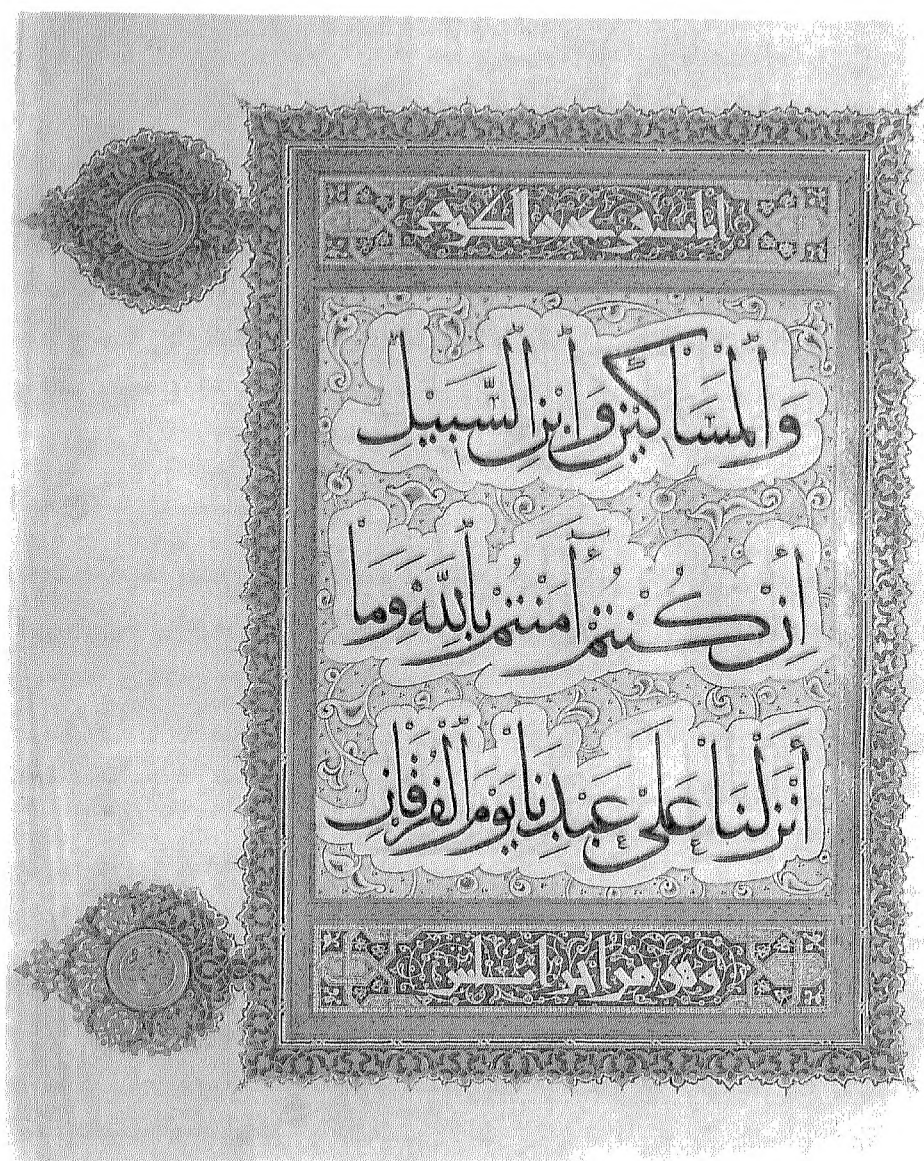 وَٱلْمَسَاكِينِ وَٱبْنِ ٱلسَّبِيلِ
إِن كُنتُمْ آمَنتُم بِٱللَّهِ وَمَا
أَنزَلْنَا عَلَىٰ عَبْدِنَا يَوْمَ ٱلْفُرْقَانِ